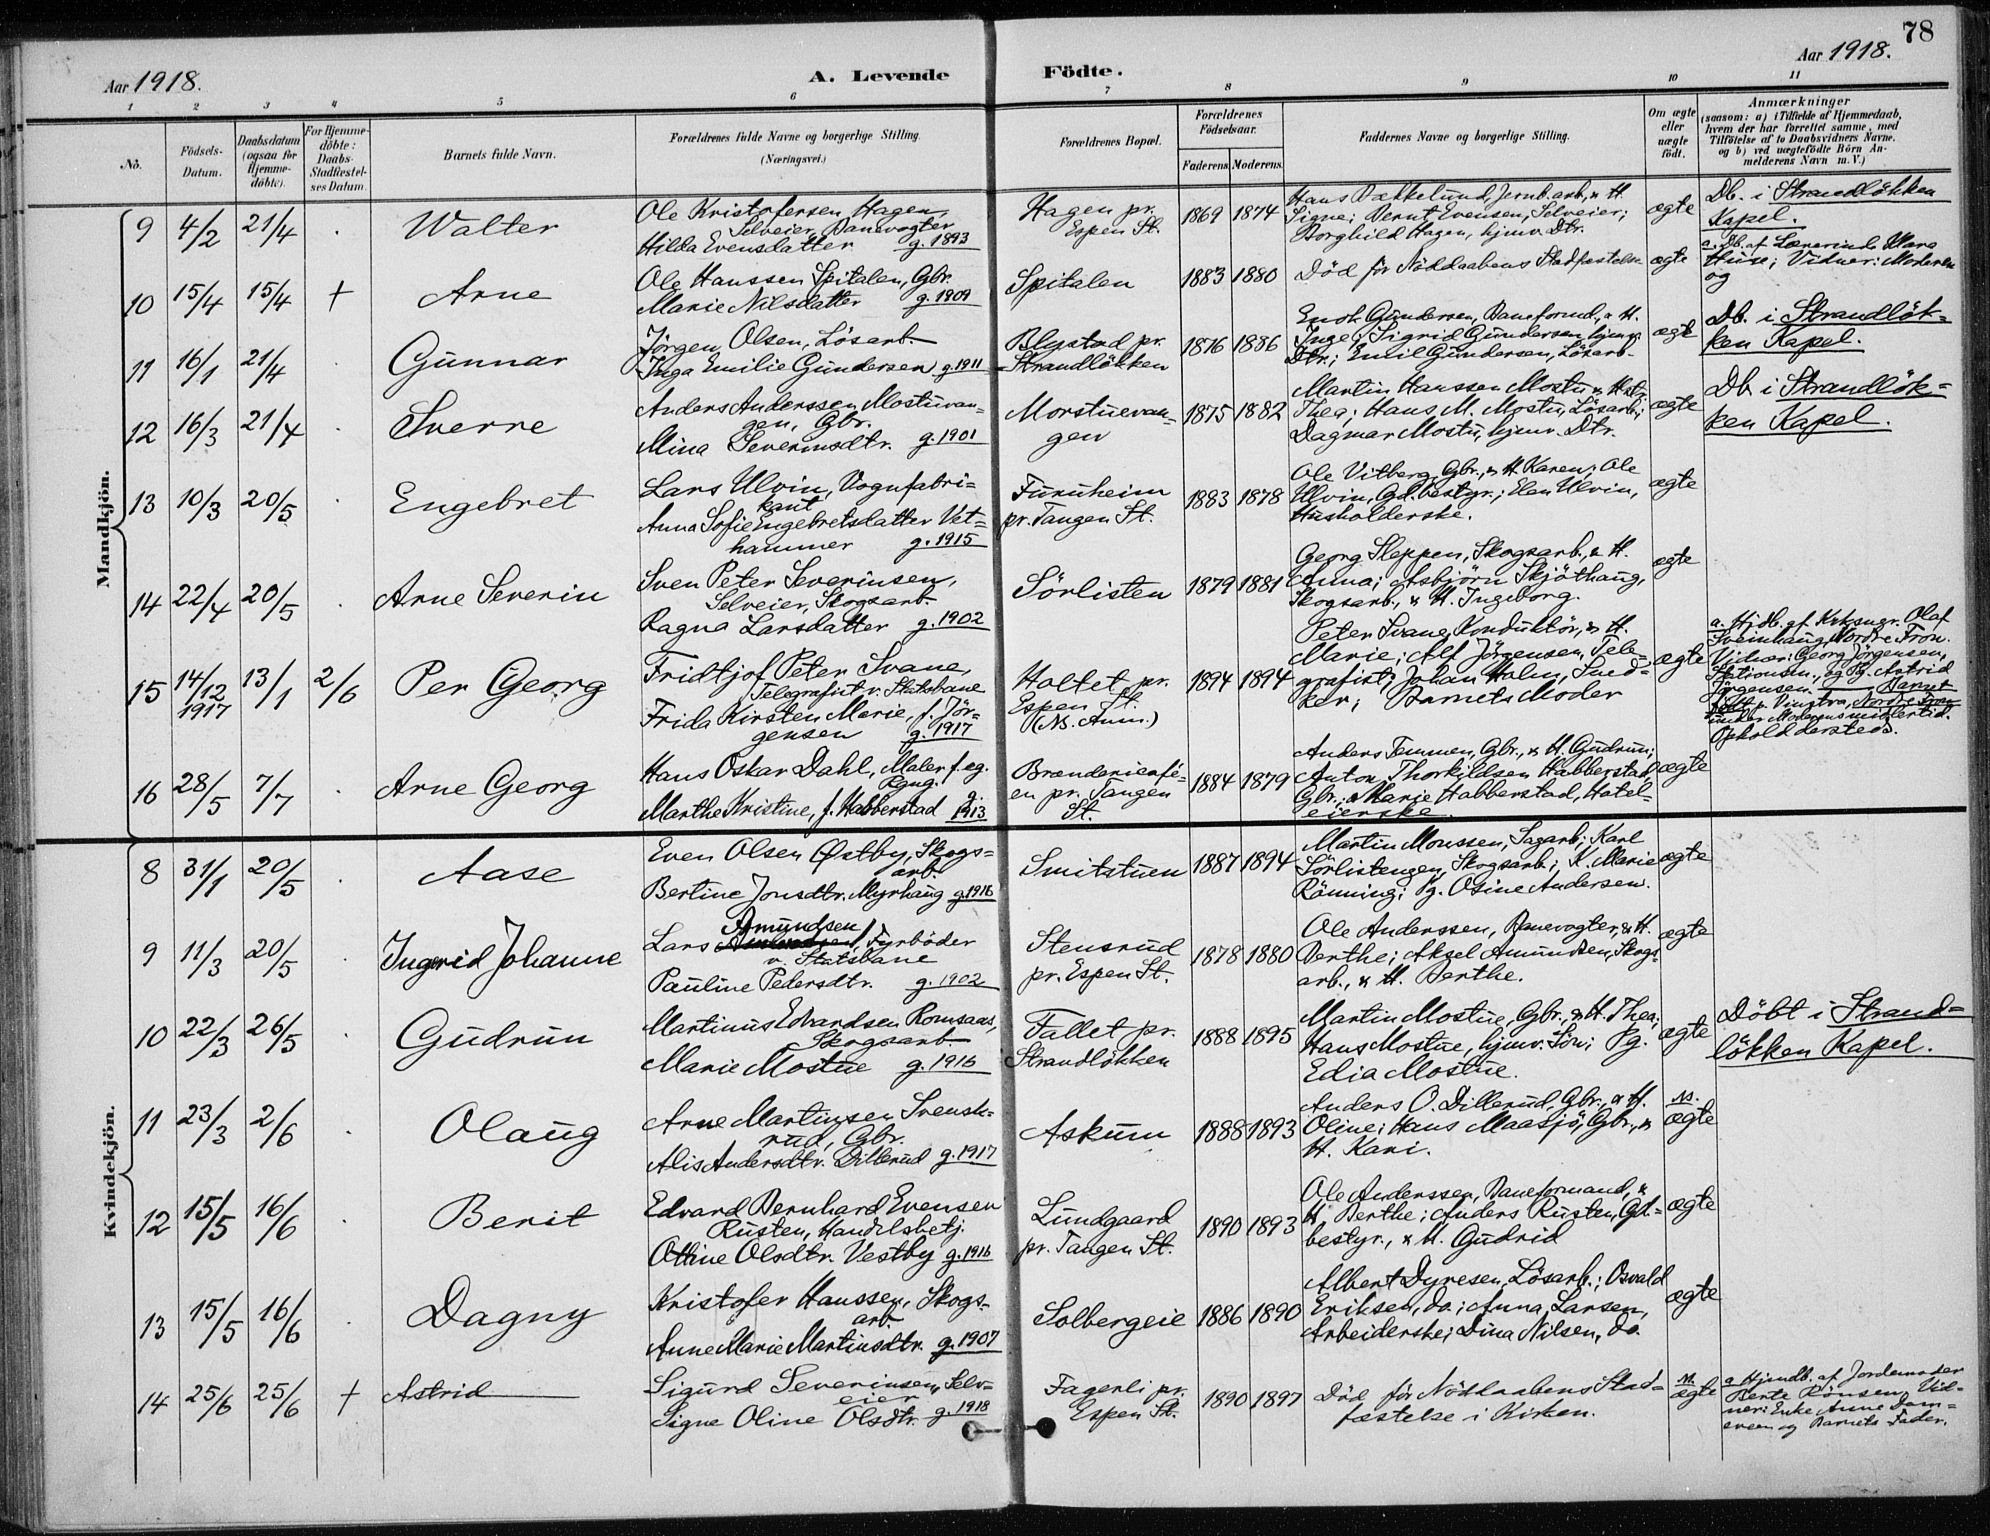 78
Aar 1918.
A. Levende
Födte.
Aar 1918.
1 2 3 4 5 6 7 8 9 10 11
No.
Födsels-
Datum.
Daabsdatum
(ogsaa for
Hjemme-
döbte).
For Hjemme-
döbte:
Daabs-
Stadfæstel-
ses Datum.
Barnets fulde Navn.
Forældrenes fulde Navne og borgerlige Stilling.
(Næringsvei.)
Forældrenes Bopæl.
Forældrenes
Födselsaar.
Faderens. Moderens.
Faddernes Navne og borgerlige Stilling.
Om ægte
eller
uægte
födt.
Anmærkninger
(saasom: a) i Tilfælde af Hjemmedaab,
hvem der har forrettet samme, med
Tilföielse af to Daabsvidners Navne.
og b) ved uægtefödte Börn An-
melderens Navn m. V.)
Mandkjön.
9 4/2 21/4 . Walter
Ole Kristofersen Hagen,
Selveier, Banevogter
Hilda Evensdatter g. 1893
Hagen pr.
Espen St.
1869 1874
Hans Bækkelund, Jernb.arb. & H.
Signe; Bernt Evensen, Selveier;
Borghild Hagen, hjmv. Dtr.
ægte
Db. i Strandlökken
Kapel.
10 15/4 15/4 + Arne
Ole Hanssen Spitalen, Gbr.
Marie Nilsdatter g. 1909
Spitalen
1883 1880
Död för Nöddaabens Stadfæstelse
ægte
a. Db. af Lærerinde Klara
Huse; Vidner: Moderen
og
11 16/1 21/4 Gunnar
Jörgen Olsen, Lösarb.
Inga Emilie Gundersen g. 1911
Blystad pr.
Strandlökken
1876 1886
Enok Gundersen, Baneformd., & H.
Inge; Sigrid Gundersen, hjmv.
Dtr.; Emil Gundersen, Lösarb.
ægte
Db. i Strandlök-
ken Kapel.
12 16/3 21/4 . Sverre
Anders Anderssen Mostuvan-
gen, Gbr.
Mina Severinsdtr. g. 1901
Morstuevan-
gen
1875 1882
Martin Hanssen Mostu & Hst.
Thea; Hans M. Mostu, Lösarb.;
Dagmar Mostu, hjmv. Dtr.
ægte
Db. i Strandlök-
ken Kapel.
13 10/3 20/5 . Engebret
Lars Ulvin, Vognfabri-
kant
Anna Sofie Engebretsdatter Vet-
hammer g. 1915
Furuheim
pr. Tangen St.
1883 1878
Ole Vitberg, Gbr., & H. Karen; Ole
Ulvin, Gd.bestyr.; Elen Ulvin,
Husholderske.
ægte
14 22/4 20/5 . Arne Severin
Sven Peter Severinsen,
Selveier, Skogsarb.
Ragna Larsdatter g. 1902
Sörlisten
1879 1881
Georg Sleppen, Skogsarb., & H.
Anna; Asbjörn Skjöthaug,
Skogsarb., & H. Ingeborg.
ægte
15 14/12 1917 13/1 2/6 Per Georg
Fridtjof Peter Svane,
Telegrafist v. Statsbane
Frida Kirsten Marie, f. Jör-
gensen g. 1917
Holtet pr.
Espen St.
(Ns. Anm.)
1894 1894
Peter Svane, Konduktör, & H.
Marie; Alf Jörgensen, Tele-
grafist; Johan Holm, Sned-
ker; Barnets Moder
ægte
a. Hjdb. af Krksngr. Olaf
Sveinhaug, Nordre Fron.
Vidner: Georg Jörgensen,
Stationsm., og Pg. Astrid
Jörgensen. Barnet
födt p. Vinstra, Nordre Fron
under Moderens midlertid.
Ophold dersteds.
16 28/5 7/7 Arne Georg
Hans Oskar Dahl, Maler f. eg.
Regng.
Marthe Kristine, f. Habberstad g. 1913
Brænderiers-
en pr. Tangen
St.
1884 1879
Anders Temmen, Gbr., & H. Gudrun;
Anton Thorkildsen Habberstad,
Gbr.; & Marie Habberstad, Hotel-
eierske.
ægte
Kvindekjön.
8 31/1 20/5 . Aase
Even Olsen Østby, Skogs-
arb.
Bertine Jonsdtr. Myrhaug g. 1916
Smitstuen
1887 1894
Martin Monssen, Sagarb.; Karl
Sörlistengen, Skogsarb.; K. Marie
Rönning; Pg. Osine Andersen.
ægte
9 11/3 20/5 . Ingrid Johanne
Amundsen
Lars Fyrböder
v. Statsbane
Pauline Pedersdtr. g. 1902
Stensrud
pr. Espen St.
1878 1880
Ole Anderssen, Banevogter, & H.
Berthe; Aksel Amundsen, Skogs-
arb., & H. Berthe.
ægte
10 22/3 26/5 . Gudrun
Martinus Edvardsen Romsaas,
Skogsarb.
Marie Mostue g. 1916
Fallet pr.
Strandlökken
1888 1895
Martin Mostue, Gbr., & H. Thea;
Hans Mostue, hjmv. Sön; Pg.
Edia Mostue.
ægte
Döbt i Strand-
lökken Kapel.
11 23/3 2/6 . Olaug
Arne Martinsen Svensk-
rud, Gbr.
Alis Andersdtr. Dillerud g. 1917
Askum
1888 1893
Anders O. Dillerud, Gbr., & H.
Oline; Hans Maasjö, Gbr., &
H. Kari.
Ns.
ægte
12 15/5 16/6 . Berit
Edvard Bernhard Evensen
Rusten, Handelsbetj.
Otline Olsdtr. Vestby g. 1916
Lundgaard
pr. Tangen St.
1890 1893
Ole Anderssen, Baneformand, &
H. Berthe; Anders Rusten, Gd.-
bestyr., & H. Gudrid
ægte
13 15/5 16/6 . Dagny
Kristofer Hanssen, Skogs-
arb.
Anne Marie Martinsdtr. g. 1907
Solbergeie
1886 1890
Albert Dyresen, Lösarb.; Osvald
Eriksen, do.; Anna Larsen,
Arbeiderske; Dina Nilsen, do.
ægte
14 25/6 25/6 + Astrid
Sigurd Severinsen, Selv-
eier
Signe Oline Olsdtr. g. 1918
Fagerli pr.
Espen St.
1890 1897
Död för Nöddaabens Stad-
fæstelse i Kirken.
Ns.
ægte
a. Hjmdb. af Jordemoder
Berte Rönsen. Vid-
ner: Enke Anne Dam-
eveen og Barnets Fader.